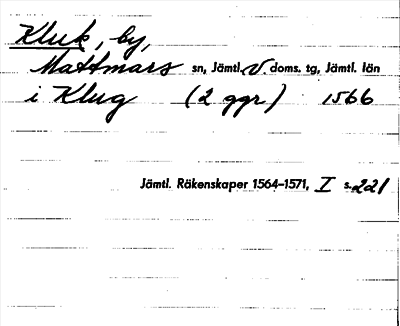 Kluk, by,
Mattmars sn, Jämtl. V. doms. tg, Jämtl. län
i Klug (2 ggr) 1566
Jämtl. Räkenskaper 1564–1571, I s. 221